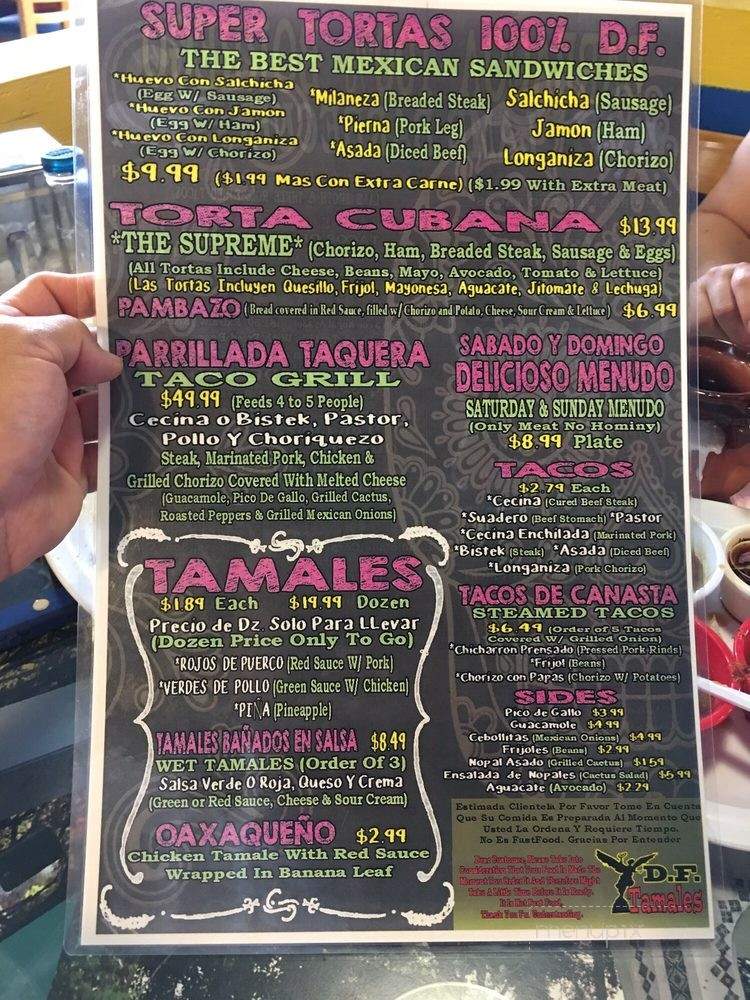 SUPER TORTAS 100% D.F.
THE BEST MEXICAN SANDWICHES
*Huevo Con Salchicha
(Egg W/ Sausage)
*Huevo Con Jamon
(Egg W/ Ham)
*Huevo Con Longaniza
(Egg W/ Chorizo)
*Milaneza (Breaded Steak)
*Pierna (Pork Leg)
*Asada (Diced Beef)
Salchicha (Sausage)
Jamon (Ham)
Longaniza (Chorizo)
$9.99 ($1.99 Mas Con Extra Carne) ($1.99 With Extra Meat)
TORTA CUBANA $13.99
*THE SUPREME* (Chorizo, Ham, Breaded Steak, Sausage & Eggs)
(All Tortas Include Cheese, Beans, Mayo, Avocado, Tomato & Lettuce)
(Las Tortas Incluyen Quesillo, Frijol, Mayonesa, Aguacate, Jitomate & Lechuga)
PAMBAZO (Bread covered in Red Sauce, filled w/ Chorizo and Potato, Cheese, Sour Cream & Lettuce) $6.99
PARRILLADA TAQUERA
TACO GRILL
$49.99 (Feeds 4 to 5 People)
Cecina o Bistek, Pastor,
Pollo Y Choriquezo
Steak, Marinated Pork, Chicken &
Grilled Chorizo Covered With Melted Cheese
(Guacamole, Pico De Gallo, Grilled Cactus,
Roasted Peppers & Grilled Mexican Onions)
TAMALES
$1.89 Each $19.99 Dozen
Precio de Dz. Solo Para LLevar
(Dozen Price Only To Go)
*ROJOS DE PUERCO (Red Sauce W/ Pork)
*VERDES DE POLLO (Green Sauce W/ Chicken)
*PIÑA (Pineapple)
TAMALES BAÑADOS EN SALSA $8.49
WET TAMALES (Order Of 3)
Salsa Verde O Roja, Queso Y Crema
(Green or Red Sauce, Cheese & Sour Cream)
OAXAQUEÑO $2.99
Chicken Tamale With Red Sauce
Wrapped In Banana Leaf
SABADO Y DOMINGO
DELICIOSO MENUDO
SATURDAY & SUNDAY MENUDO
(Only Meat No Hominy)
$8.99 Plate
TACOS
$2.79 Each
*Cecina (Cured Beef Steak)
*Suadero (Beef Stomach) *Pastor
*Cecina Enchilada (Marinated Pork)
*Bistek (Steak) *Asada (Diced Beef)
*Longaniza (Pork Chorizo)
TACOS DE CANASTA
STEAMED TACOS
$6.49 (Order of 5 Tacos
Covered W/ Grilled Onion)
*Chicharron Prensado (Pressed Pork Rinds)
*Frijol (Beans)
*Chorizo con Papas (Chorizo W/ Potatoes)
SIDES
Pico de Gallo $3.99
Guacamole $4.99
Cebollitas (Mexican Onions) $4.99
Frijoles (Beans) $2.99
Nopal Asado (Grilled Cactus) $1.59
Ensalada de Nopales (Cactus Salad) $5.99
Aguacate (Avocado) $2.29
Estimada Clientela Por Favor Tome En Cuenta
Que Su Comida Es Preparada Al Momento Que
Usted La Ordena Y Requiere Tiempo.
No Es FastFood. Gracias Por Entender
Dear Customer, Please Take Into
Consideration That Your Food Is Made The
Moment You Order It And Therefore Might
Take A Little Time Before It Is Ready.
It Is Not Fast Food,
Thank You For Understanding.
D.F.
Tamales
menupix